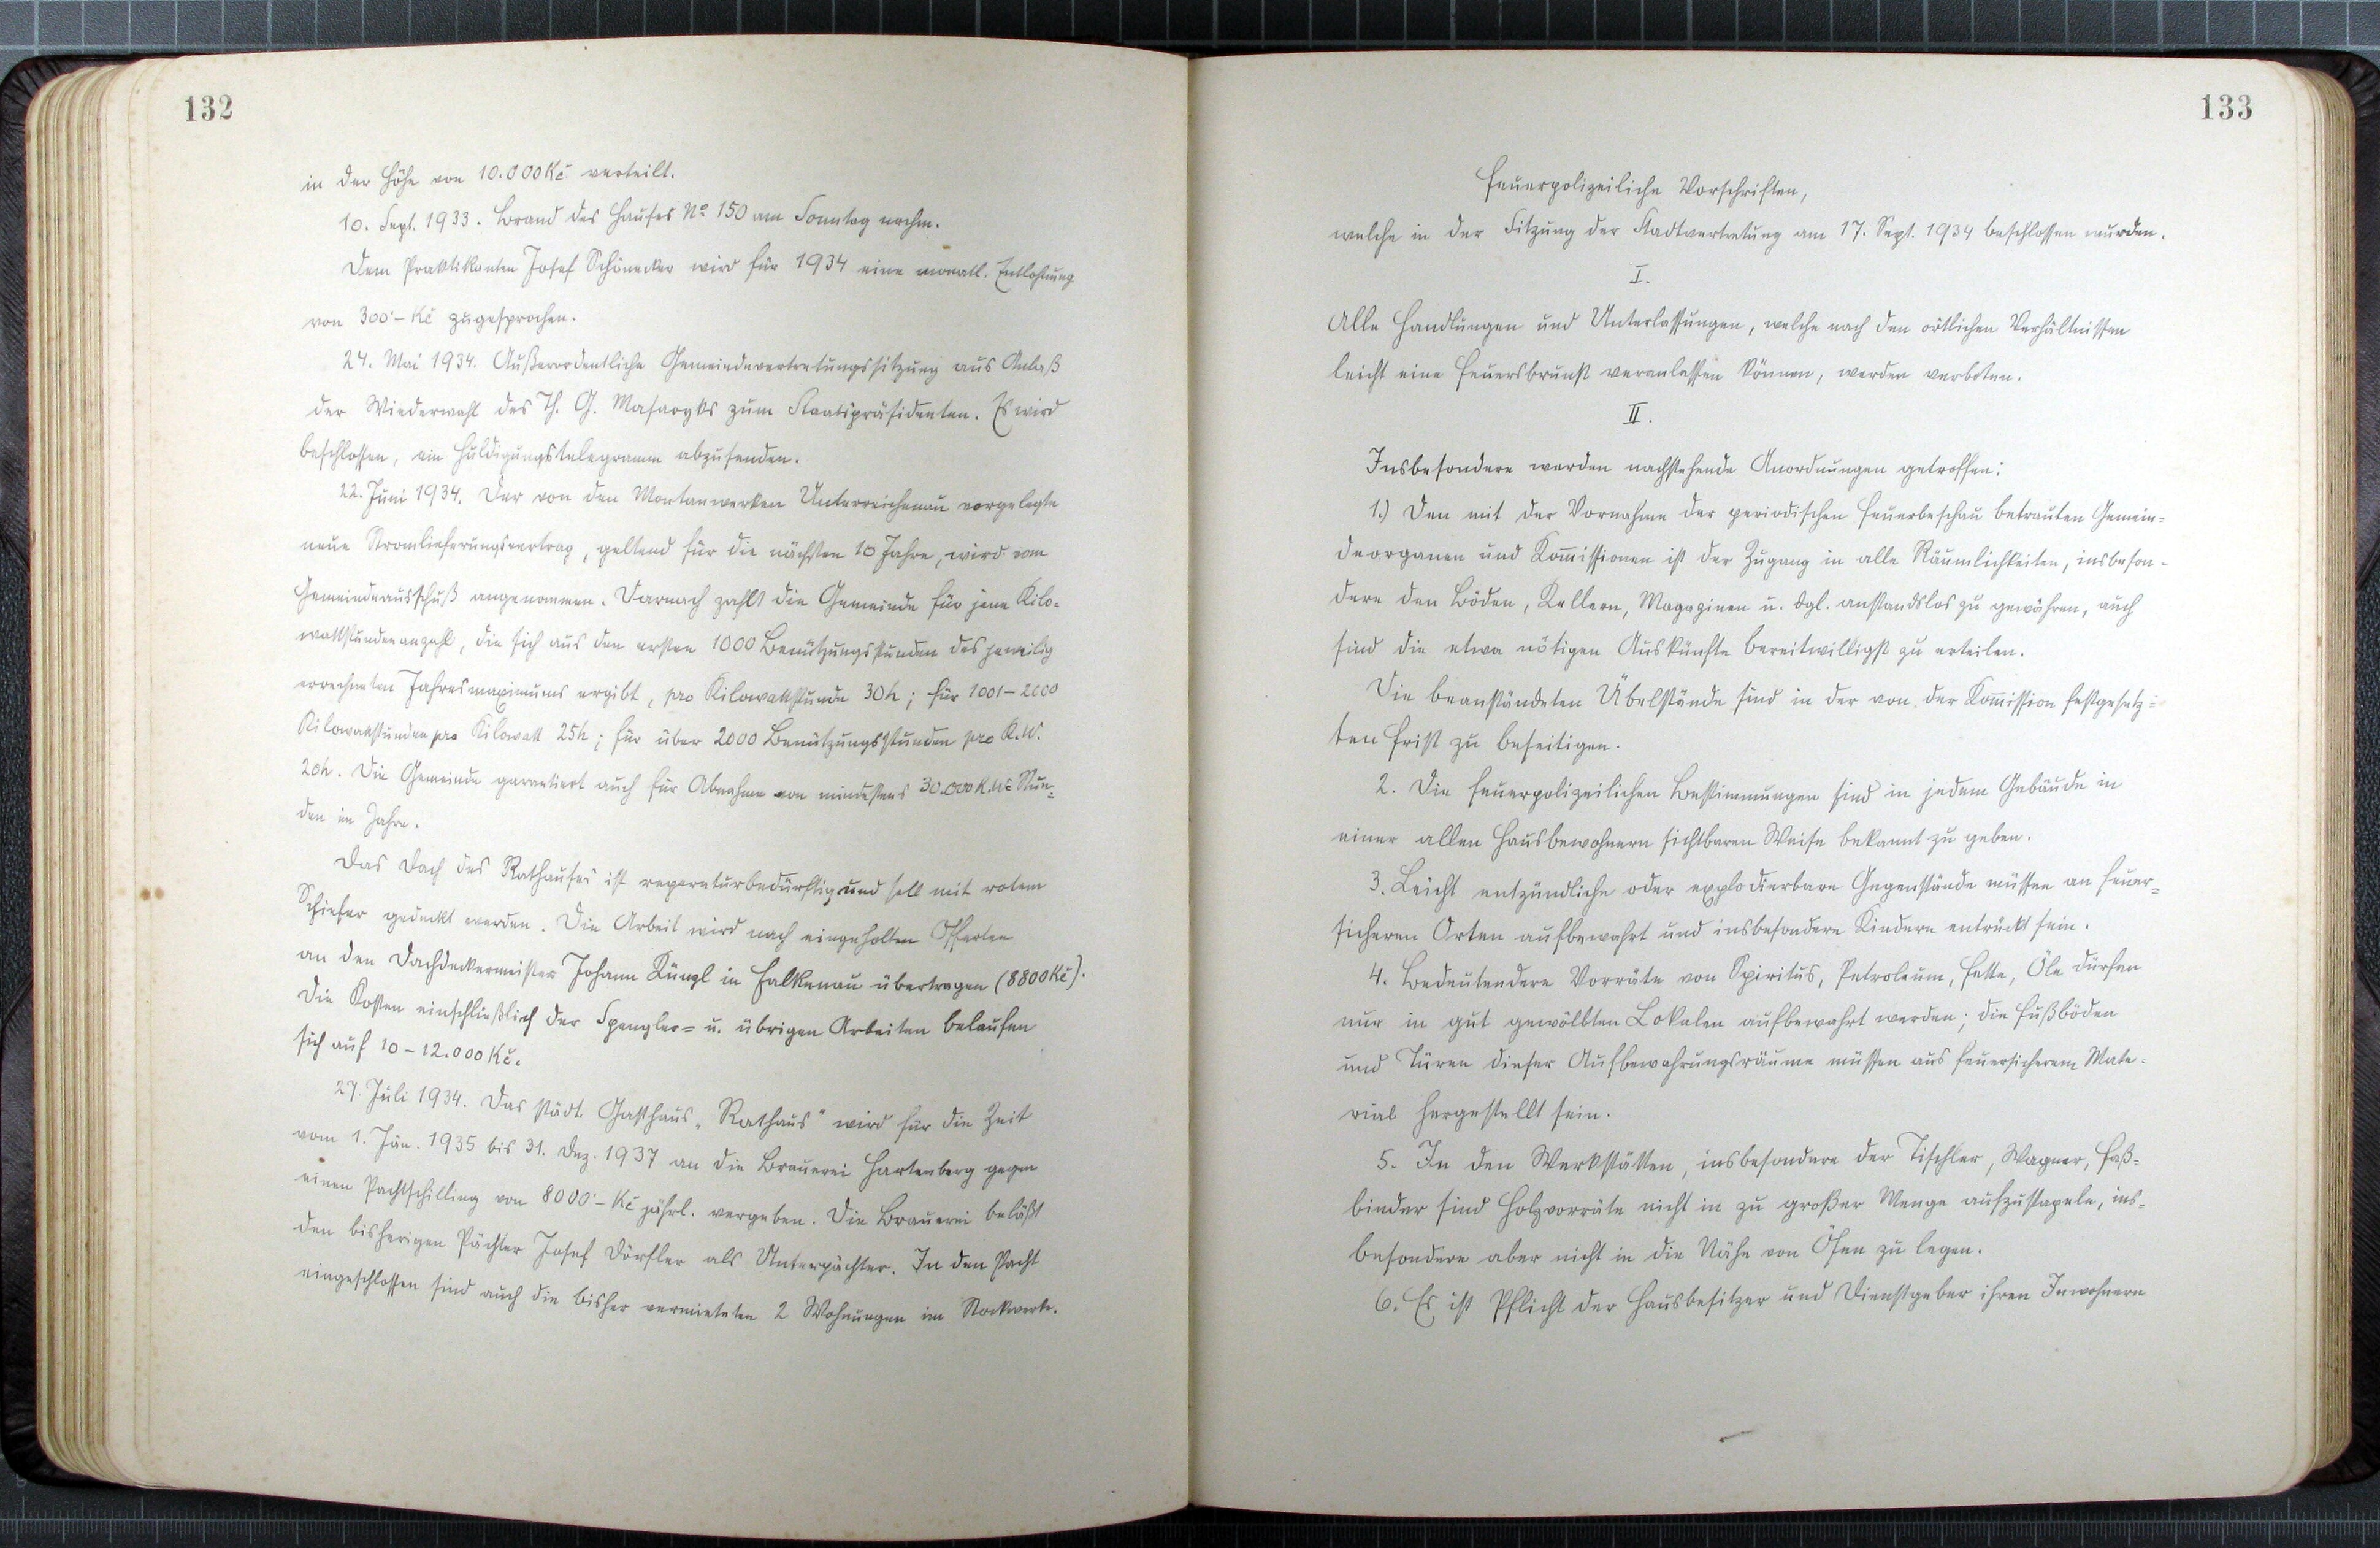 132
in der Höhe von 10.000 Kč verteilt.
10. Sept. 1933. Brand des Hauses No 150 am Sonntag nachm.
Dem Praktikanten Josef Schönecker wird für 1934 eine monatl. Entlohnung
von 300·– Kč zugesprochen.
24. Mai 1934. Außerordentliche Gemeindevertretungssitzung aus Anlaß
der Wiederwahl des Th. G. Masaryks zum Staatspräsidenten. Es wird
beschlossen, ein Huldigungstelegramm abzusenden.
22. Juni 1934. Der von den Montanwerken Unterreichenau vorgelegte
neue Stromlieferungsvertrag, geltend für die nächsten 10 Jahre, wird vom
Gemeindeausschuß angenommen. Darnach zahlt die Gemeinde für jene Kilo=
wattstundenanzahl, die sich aus den ersten 1000 Benützungsstunden des jeweilig
errechneten Jahresmaximums ergibt, pro Kilowattstunde 30h; für 1001–2000
Kilowattstunden pro Kilowatt 25h; für über 2000 Benützungsstunden pro K.W.
20h. Die Gemeinde garantiert auch für Abnahme von mindestens 30.000 K.W= Stun=
den im Jahre.
Das Dach des Rathauses ist reparaturbedürftig und soll mit rotem
Schiefer gedeckt werden. Die Arbeit wird nach eingeholten Offerten
an den Dachdeckermeister Johann Küngl in Falkenau übertragen (8800 Kč).
Die Kosten einschließlich der Spengler= u. übrigen Arbeiten belaufen
sich auf 10–12.000 Kč.
27. Juli 1934. Das städt. Gasthaus „Rathaus" wird für die Zeit
vom 1. Jän. 1935 bis 31. Dez. 1937 an die Brauerei Hartenberg gegen
einen Pachtschilling von 8000·– Kč jährl. vergeben. Die Brauerei beläßt
den bisherigen Pächter Josef Dörfler als Unterpächter. In den Pacht
eingeschlossen sind auch die bisher vermieteten 2 Wohnungen im Stockwerke.
133
Feuerpolizeiliche Vorschriften,
welche in der Sitzung der Stadtvertretung am 17. Sept. 1934 beschlossen wurden.
I.
Alle Handlungen und Unterlassungen, welche nach den örtlichen Verhältnissen
leicht eine Feuersbrunst veranlassen können, werden verboten.
II.
Insbesondere werden nachstehende Anordnungen getroffen:
1.) Den mit der Vornahme der periodischen Feuerbeschau betrauten Gemein=
deorganen und Kom̄issionen ist der Zugang in alle Räumlichkeiten, insbeson=
dere den Böden, Kellern, Magazinen u. dgl. anstandslos zu gewähren, auch
sind die etwa nötigen Auskünfte bereitwilligst zu erteilen.
Die beanständeten Übelstände sind in der von der Kom̄ission festgesetz=
ten Frist zu beseitigen.
2. Die feuerpolizeilichen Bestimmungen sind in jedem Gebäude in
einer allen Hausbewohnern sichtbaren Weise bekannt zu geben.
3. Leicht entzündliche oder explodierbare Gegenstände müssen an feuer=
sicheren Orten aufbewahrt und insbesondere Kindern entrückt sein.
4. Bedeutendere Vorräte von Spiritus, Petroleum, Fette, Öle dürfen
nur in gut gewölbten Lokalen aufbewahrt werden; die Fußböden
und Türen dieser Aufbewahrungsräume müssen aus feuersicherem Mate=
rial hergestellt sein.
5. In den Werkstätten, insbesondere der Tischler, Wagner, Faß=
binder sind Holzvorräte nicht in zu großer Menge aufzustapeln, ins=
besondere aber nicht in die Nähe von Öfen zu legen.
6. Es ist Pflicht der Hausbesitzer und Dienstgeber ihren Inwohnern